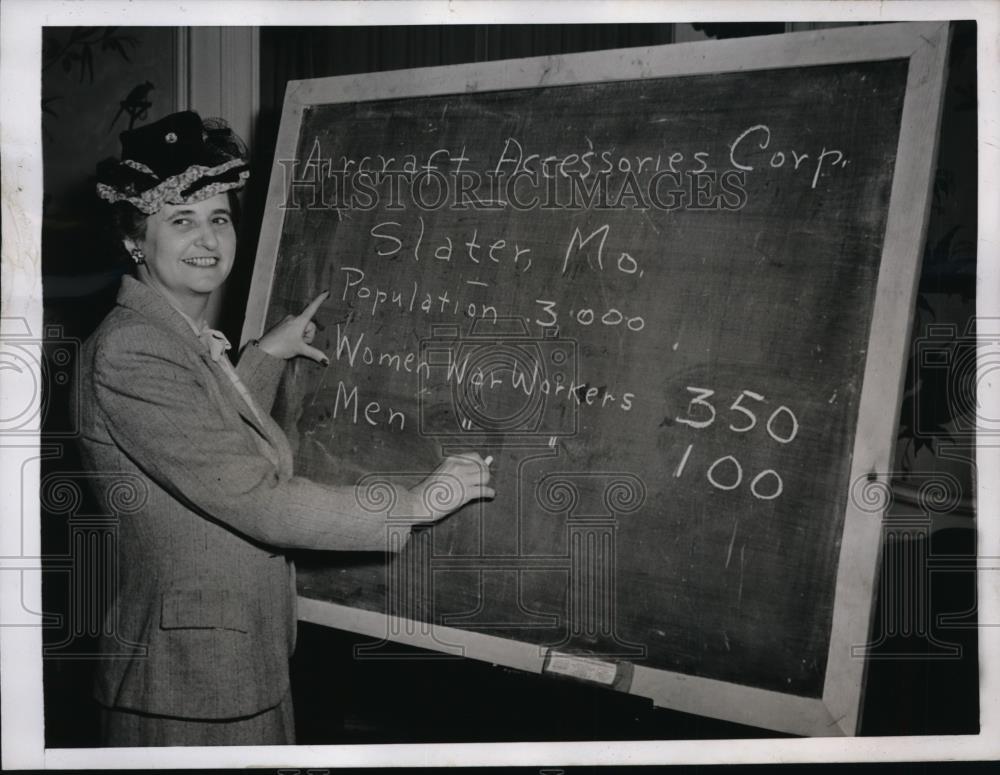 Aircraft Accessories Corp.
HISTORICIMAGES
Slater, Mo.
Population 3,000
Women War Workers 350
Men " " 100